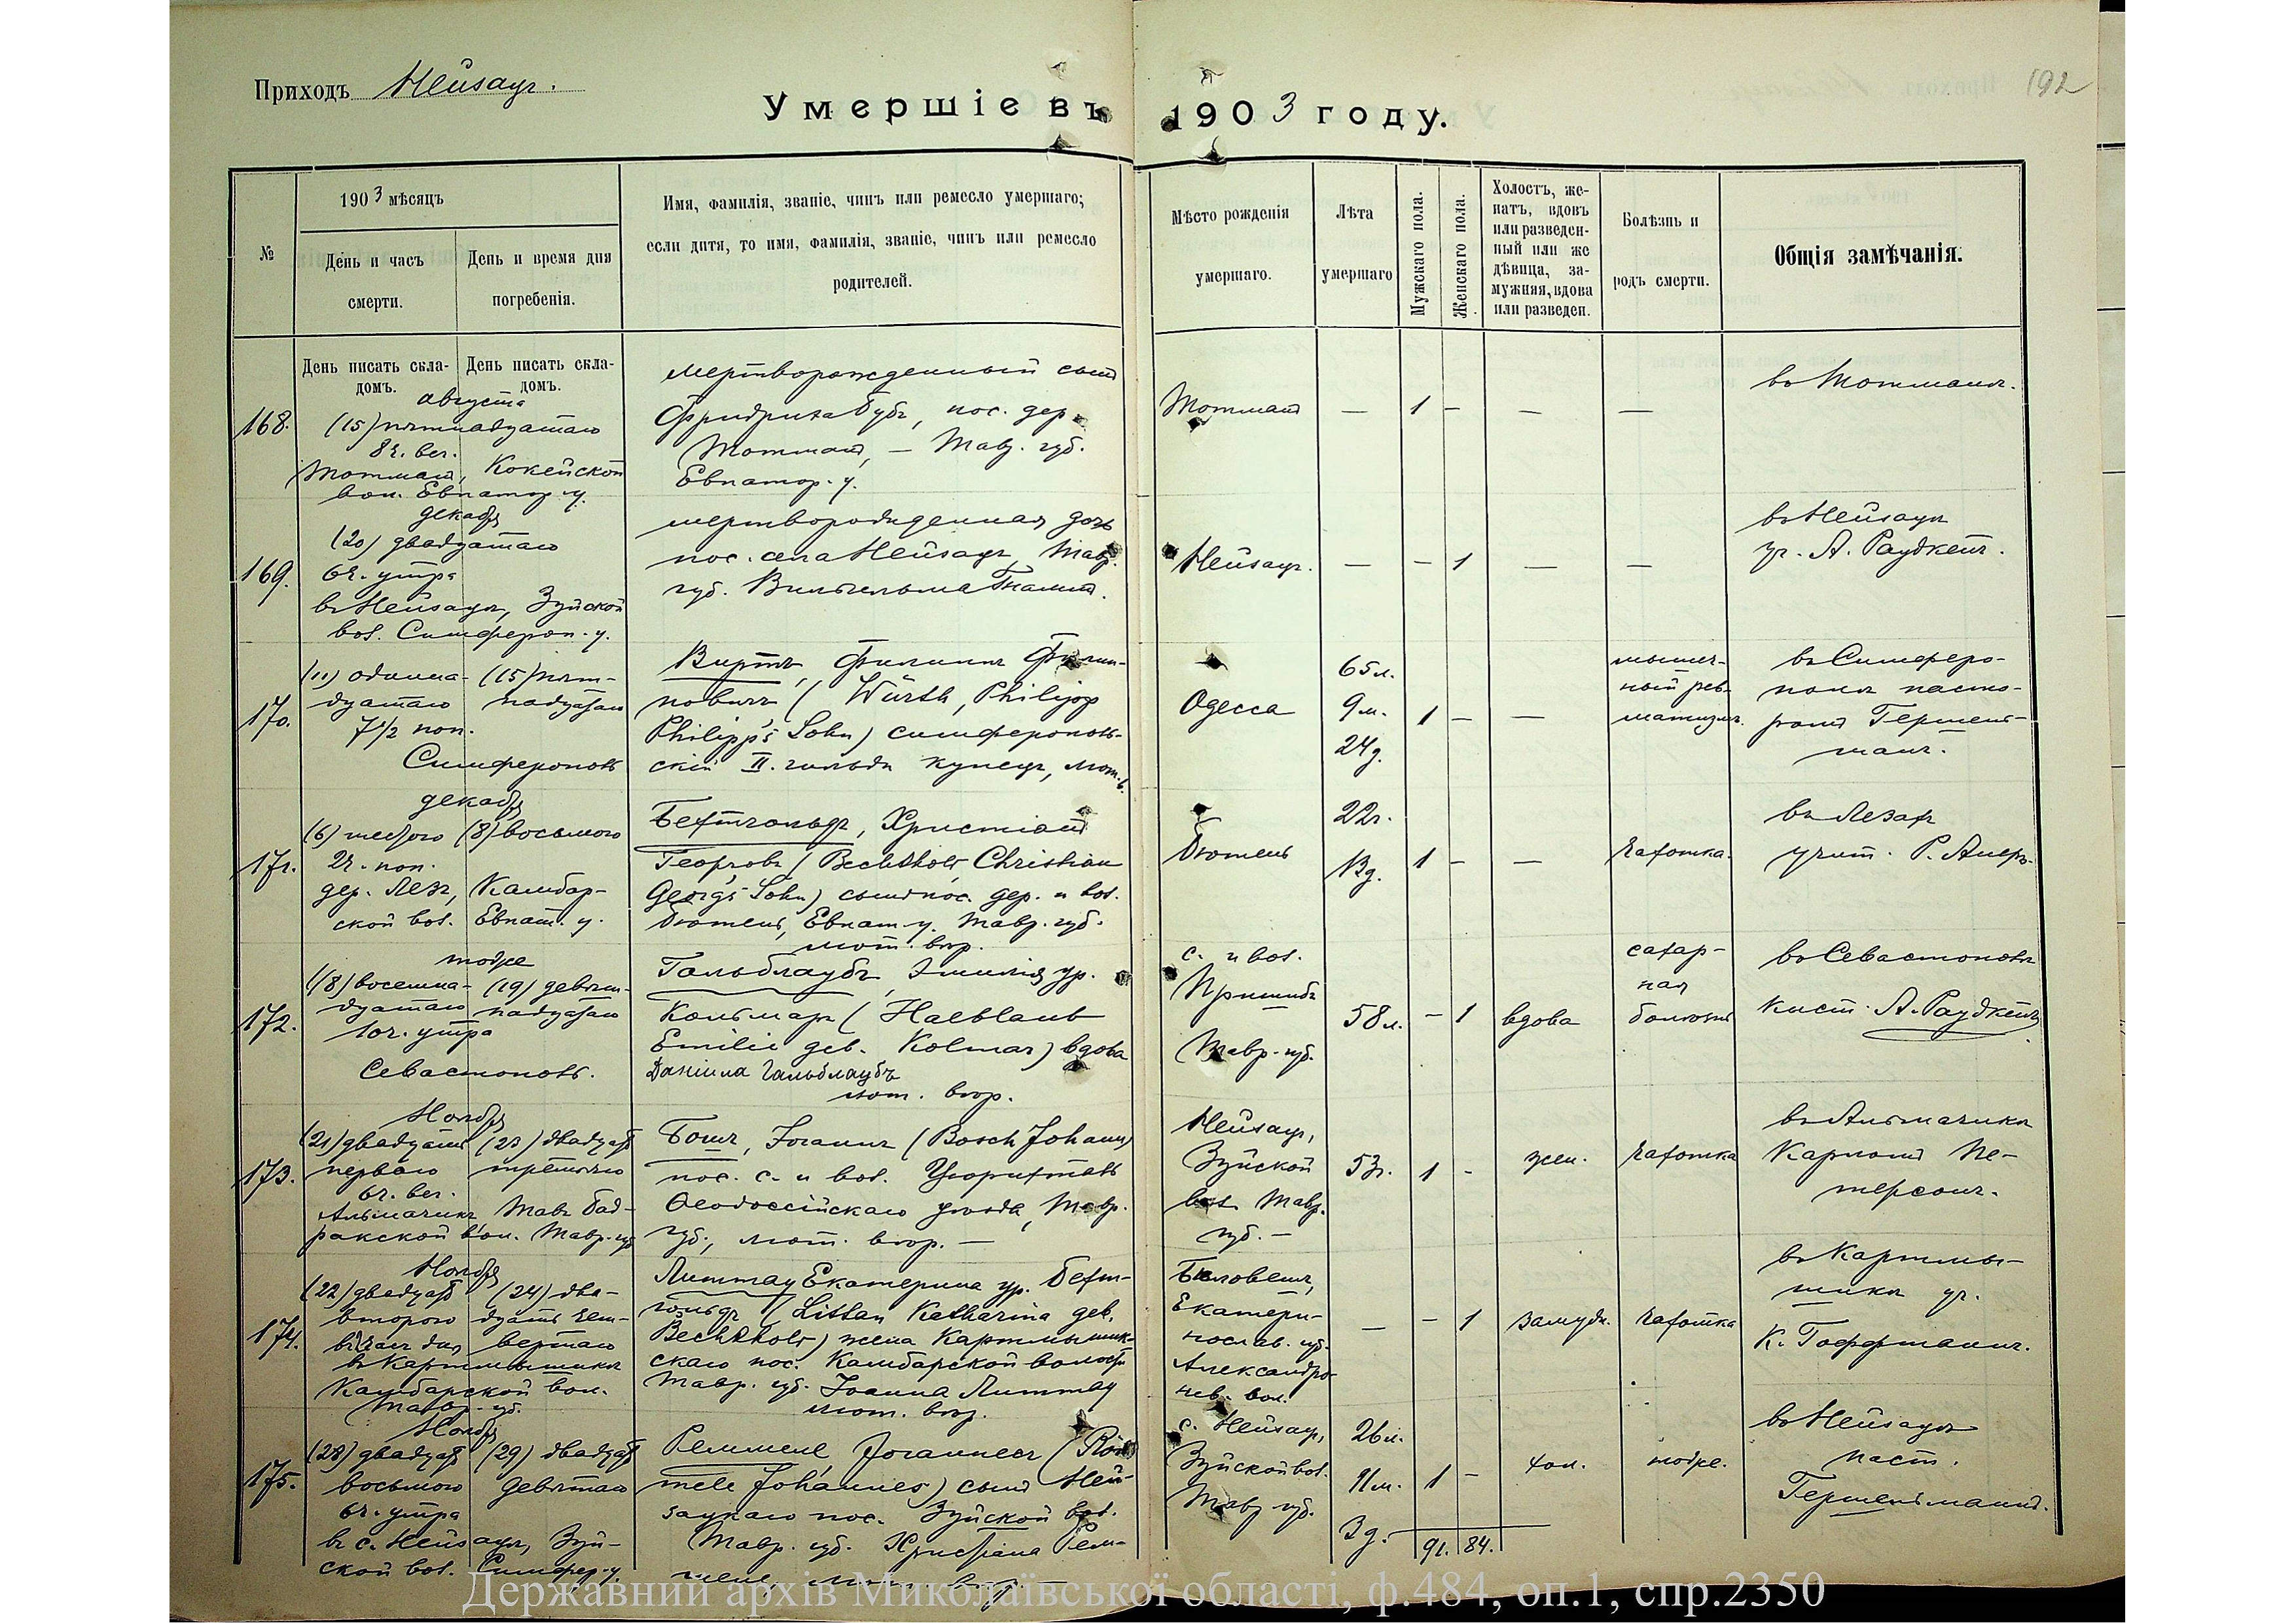 Приходъ Нейзацъ.
192
Умершіе въ 1903 году.
№
1903 мѣсяцъ
День и часъ смерти.
День и время дня погребенія.
Имя, фамилія, званіе, чинъ или ремесло умершаго;
если дитя, то имя, фамилія, званіе, чинъ или ремесло
родителей.
Мѣсто рожденія
умершаго.
Лѣта
умершаго
Мужскаго пола.
Женскаго пола.
Холостъ, же-
натъ, вдовъ
или разведен-
ный или же
дѣвица, за-
мужняя, вдова
или разведен.
Болѣзнь и
родъ смерти.
Общія замѣчанія.
День писать скла-
домъ.
День писать скла-
домъ.
168.
августа
(15) пятнадцатаго
8 ч. веч.
Кокейской
вол. Евпатор. у.
мертворожденный сынъ
Фридриха Бубъ, пос. дер.
— Тавр. губ.
Евпатор. у.
— 1 — — —
169.
декабр
(20) двадцатаго
6 ч. утра
въ Нейзацъ, Зуйской
вол. Симфероп. у.
мертворожденная дочь
пос. села Нейзацъ, Тавр.
губ. Вильгельма
Нейзацъ.
— — 1 — —
въ Нейзацъ
уч. А. Раудкепъ.
170.
(11) одинна-
дцатаго
7 1/2 поп.
(15) пят-
надцатаго
Симферополь
Виртъ, Филиппъ Филип-
повичъ (Würth, Philipp
Philipp's Sohn) симферополь-
скій II. гильди купецъ, лют.
Одесса
65 л.
9 м.
24 д.
1 — —
мышеч-
ный рев-
матизмъ.
въ Симферо-
полѣ пасто-
ромъ Гершель-
манъ.
171.
декабр
(6) шестого
2 ч. поп.
(8) восьмого
дер. Лезъ, Камбар-
ской вол. Евпат. у.
Бехтгольдъ, Христіанъ
Георговъ (Bechthold, Christian
Georg's Sohn) сынъ пос. дер. и вол.
Бютень, Евпат. у. Тавр. губ.
лют. вѣр.
Бютень
22 г.
13 д.
1 — —
Чахотка.
въ Лезахъ
учит. Р.
172.
тоже
(18) восемна-
дцатаго
10 ч. утра
(19) девят-
надцатаго
Севастополь.
Гальблаубъ, Эмилія ур.
Кольмаръ (Halblaub
Emilie geb. Kolmar) вдова
Даніила Гальблаубъ
лют. вѣр.
с. и вол.
Пришибъ
Тавр. губ.
58 л.
— 1
вдова
сахар-
ная
болѣзнь
въ Севастополѣ
кист. А. Раудкепъ
173.
Ноябр
(21) двадцать
перваго
6 ч. веч.
(23) двадцать
третьяго
Тавр. губ
Бошъ, Іоганнъ (Bosch Johann)
пос. с. и вол. Цюрихталь
Ѳеодоссійскаго уѣзда, Тавр.
губ., лют. вѣр. —
Нейзацъ,
Зуйской
вол. Тавр.
губ. —
53 г.
1 -
жен.
Чахотка
Карломъ Пе-
терсонъ.
174.
Ноябр
(22) двадцать
второго
(24) два-
дцать чет-
вертаго
Камбарской вол.
Тавр. губ.
Литтау Екатерина ур. Бехт-
гольдъ (Littau Katharina geb.
Bechthold) жена Картмышик-
скаго пос. Камбарской волости
Тавр. губ. Іоанна Литтау
лют. вѣр.
Бѣловешъ,
Екатери-
нослав. губ.
Александро-
нев. вол.
— — 1
замужн.
Чахотка
въ Картмы-
шикѣ уч.
К. Гоффманнъ.
175.
Ноябр
(28) двадцать
восьмого
6 ч. утра
(29) двадцать
девятаго
въ с. Нейзацъ, Зуй-
ской вол. Симфер. у.
Реммеле, Іоганнесъ (Röm-
mele Johannes) сынъ Ней-
зацкаго пос. Зуйской вол.
Тавр. губ. Христіана Рем-
меле, лют. вѣр. —
с. Нейзацъ,
Зуйской вол.
Тавр. губ.
26 л.
11 м.
3 д.
1 -
хол.
тоже.
въ Нейзацѣ
паст.
Гершельманъ.
91. 84.
Державний архів Миколаївської області, ф.484, оп.1, спр.2350